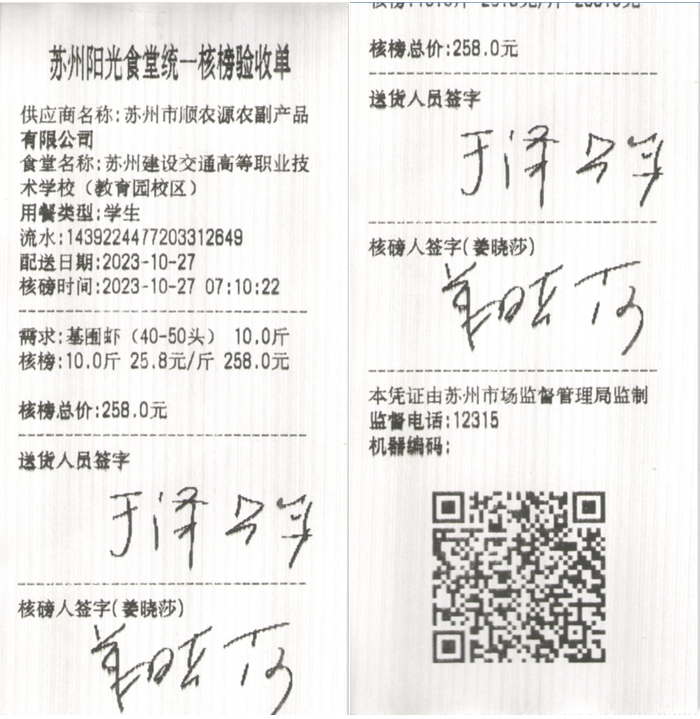 苏州阳光食堂统一核榜验收单
供应商名称:苏州市顺农源农副产品
有限公司
食堂名称:苏州建设交通高等职业技
术学校（教育园校区）
用餐类型:学生
流水:1439224477203312649
配送日期:2023-10-27
核磅时间:2023-10-27 07:10:22
需求:基围虾（40-50头） 10.0斤
核榜:10.0斤 25.8元/斤 258.0元
核榜总价:258.0元
送货人员签字
核磅人签字(姜晓莎)
姜晓莎
核榜总价:258.0元
送货人员签字
核磅人签字(姜晓莎)
姜晓莎
本凭证由苏州市场监督管理局监制
监督电话:12315
机器编码: